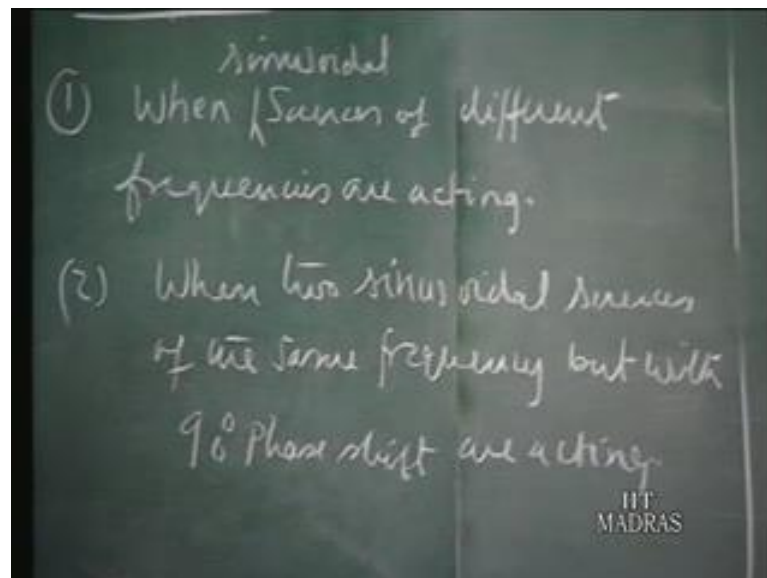 sinusoidal
① When ∧ Sources of different
frequencies are acting.
(2) When two sinusoidal sources
of the same frequency but with
90° Phase shift are acting.
IIT
MADRAS